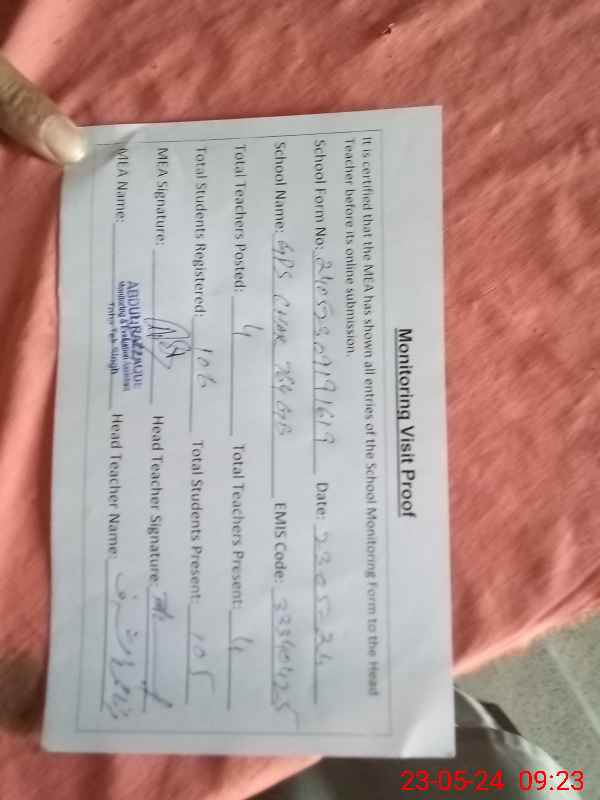 Monitoring Visit Proof
It is certified that the MEA has shown all entries of the School Monitoring Form to the Head
Teacher before its online submission.
School Form No: 24052309191619 Date: 23-05-24
School Name: GPS CHAK 784 GB EMIS Code: 33340425
Total Teachers Posted: 4 Total Teachers Present: 4
Total Students Registered: 106 Total Students Present: 105
MEA Signature: Head Teacher Signature:
MEA Name: ABDUL RAZZAQUE Head Teacher Name:
Monitoring & Evaluation Assistant
Toba Tek Singh
23-05-24 09:23